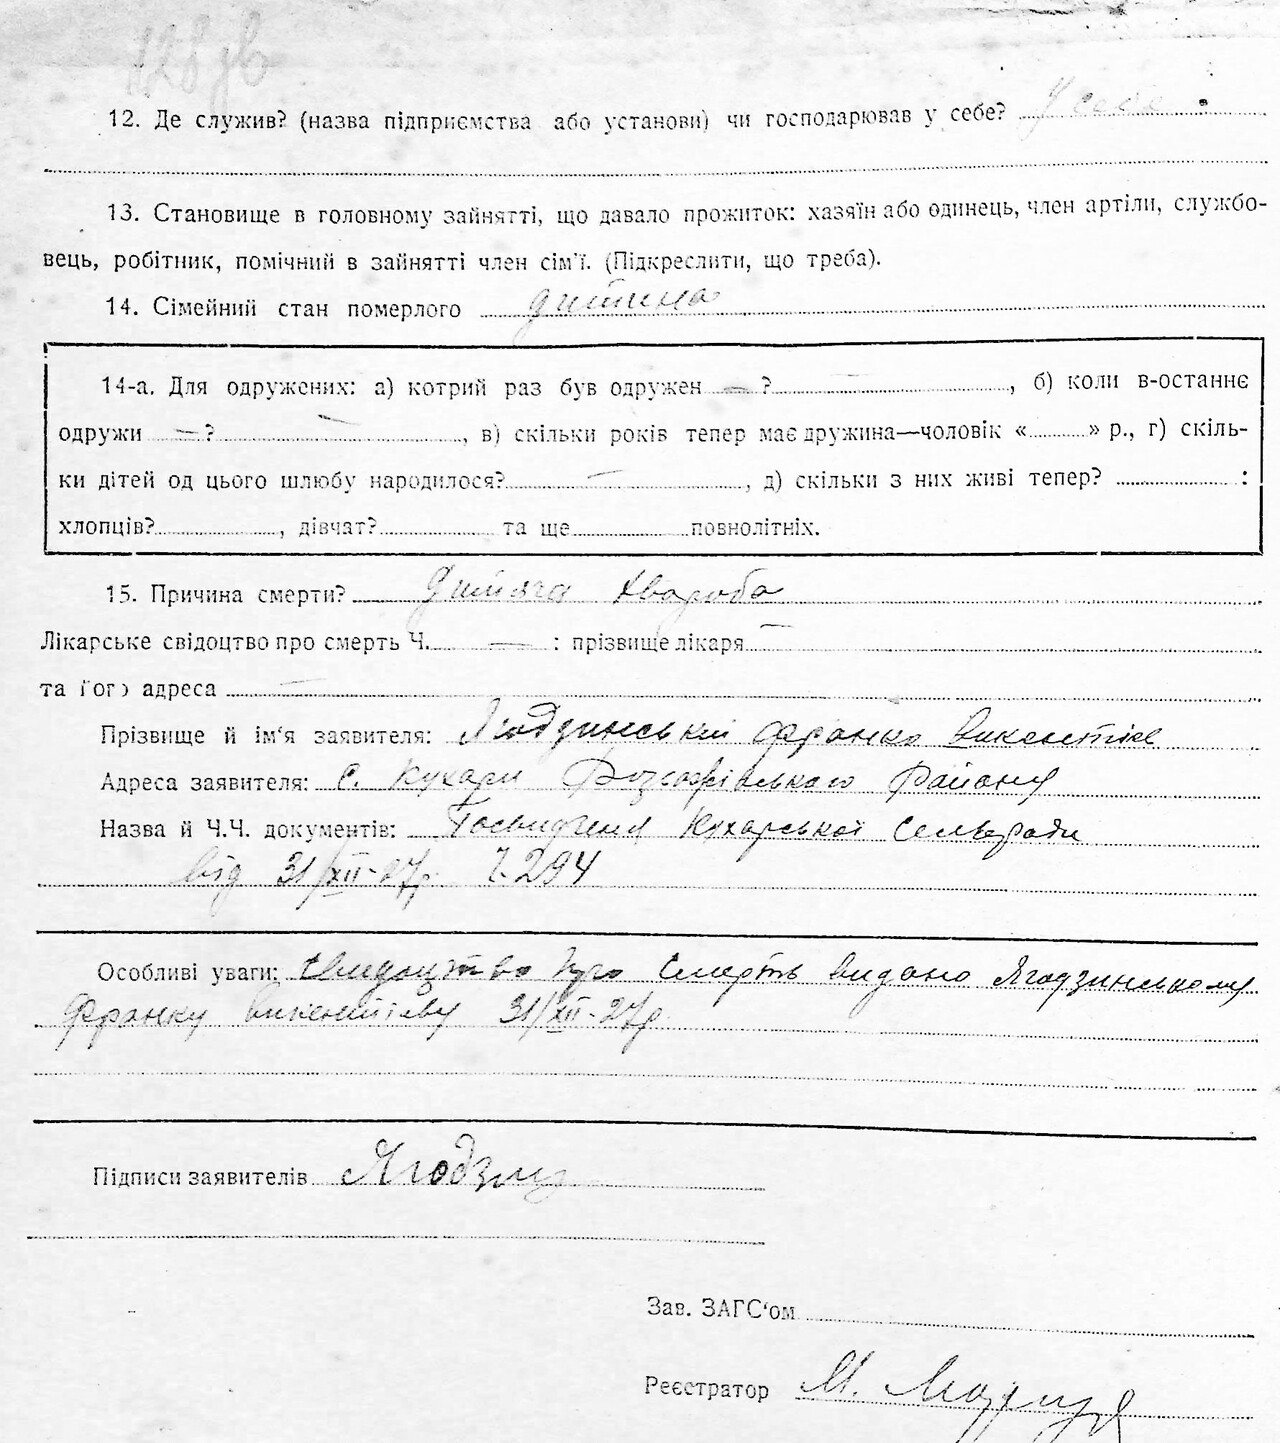 128 зв
12. Де служив? (назва підприємства або установи) чи господарював у себе? У себе
13. Становище в головному зайнятті, що давало прожиток: хазяїн або одинець, член артіли, службо-
вець, робітник, помічний в зайнятті член сім'ї. (Підкреслити, що треба).
14. Сімейний стан померлого дитина
14-а. Для одружених: а) котрий раз був одружен — ? —, б) коли в-останнє
одружи — ? —, в) скільки років тепер має дружина—чоловік «......» р., г) скіль-
ки дітей од цього шлюбу народилося? —, д) скільки з них живі тепер? :
хлопців? , дівчат? та ще повнолітніх.
15. Причина смерти? Дитяча хвароба
Лікарське свідоцтво про смерть Ч. — : прізвище лікаря —
та його адреса —
Прізвище й ім'я заявителя: Ягодзинський Франко
Адреса заявителя: с. Кухари Розважівського Району
Назва й Ч.Ч. документів: Посвидченя Кухарської Сельради
від 31/XII-27р. Ч. 294
Особливі уваги: Свидоцтво про смерть видано Ягодзинському
Франку 31/XII-27р.
Підписи заявителів Ягодзин
Зав. ЗАГС'ом
Реєстратор М.